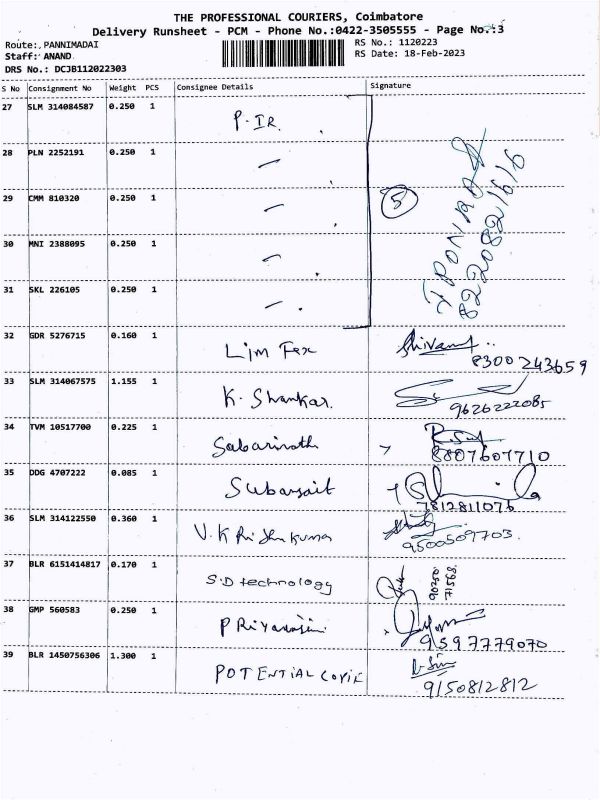 THE PROFESSIONAL COURIERS, Coimbatore
Delivery Runsheet - PCM - Phone No.:0422-3505555 - Page No.:3
Route: PANNIMADAI RS No.: 1120223
Staff: ANAND RS Date: 18-Feb-2023
DRS No.: DCJB112022303
S No Consignment No Weight PCS Consignee Details Signature
27 SLM 314084587 0.250 1 P-IR.
28 PLN 2252191 0.250 1
29 CMM 810320 0.250 1 5
30 MNI 2388095 0.250 1
31 SKL 226105 0.250 1
8220821616
32 GDR 5276715 0.160 1 Lim Fex
8300243659
33 SLM 314067575 1.155 1 K. Shankar.
9626222085
34 TVM 10517700 0.225 1 Sabarinath
8807607710
35 DDG 4707222 0.085 1
7812811076
36 SLM 314122550 0.360 1 V.K
9500509703.
37 BLR 6151414817 0.170 1 S.D technology
90250
71568.
38 GMP 560583 0.250 1
9597779070
39 BLR 1450756306 1.300 1 POTENTIAL
9150812812